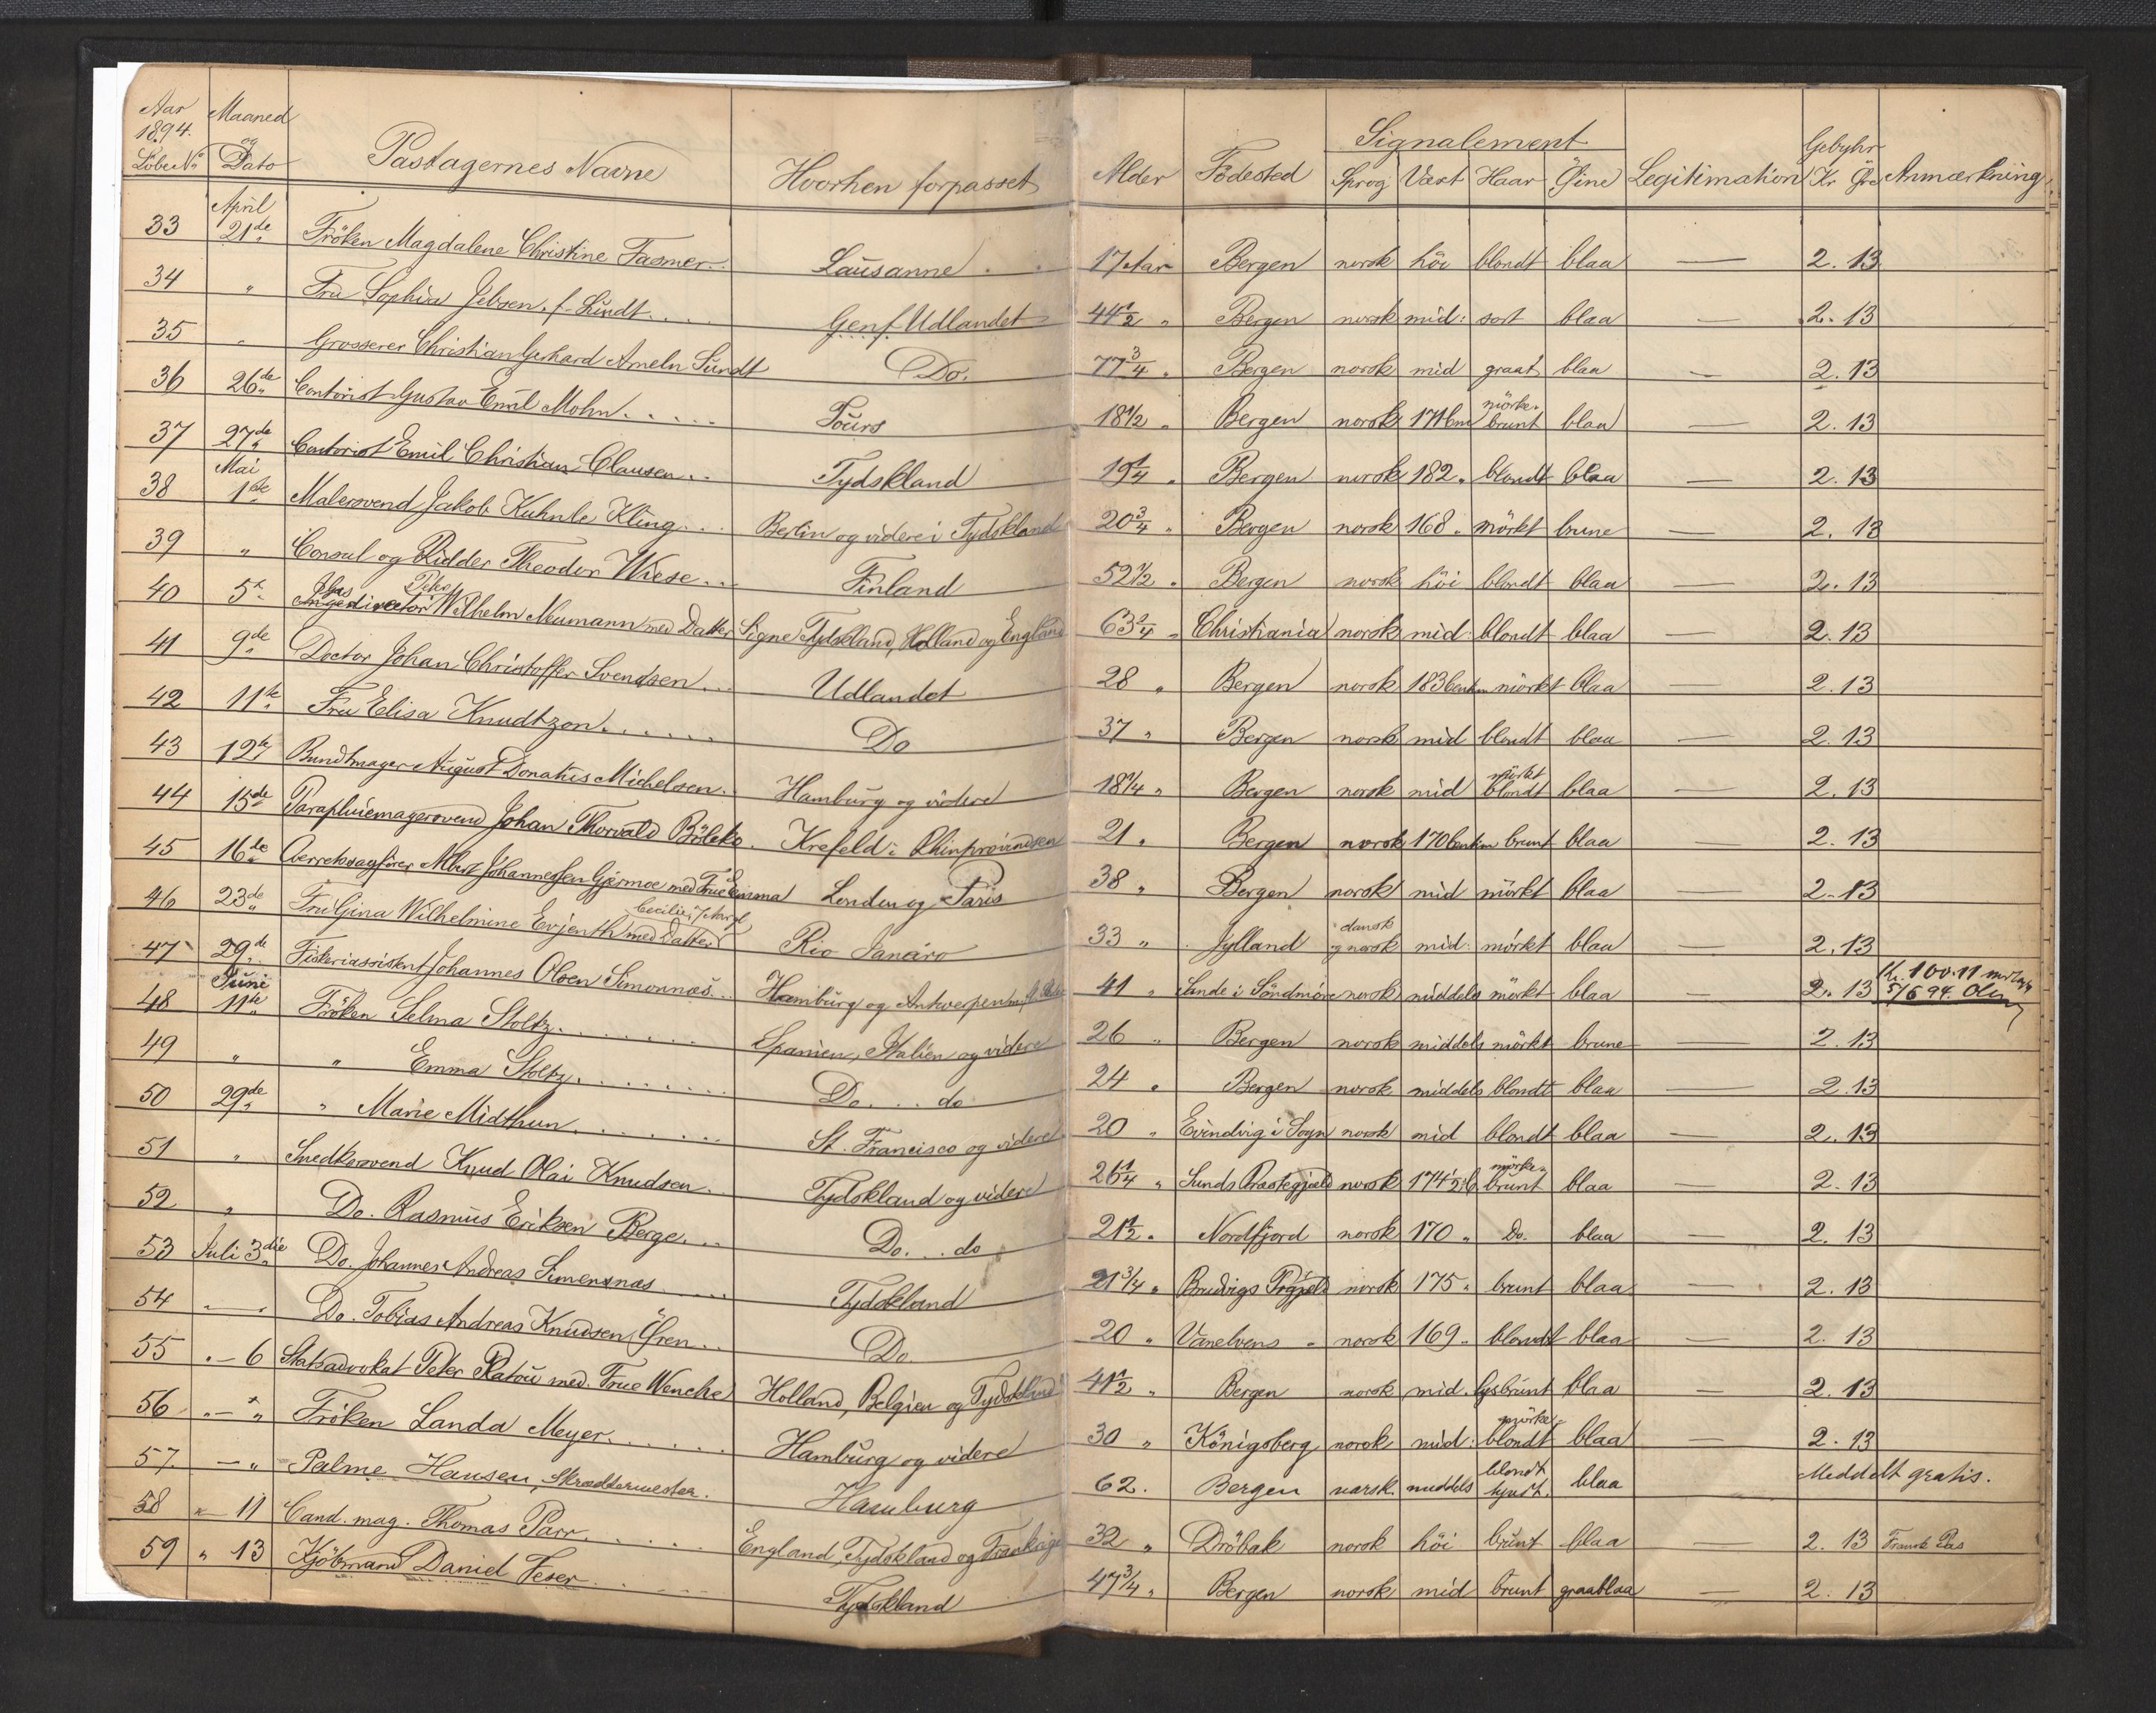 Aar 1894. Løbe No Maaned og Dato Passagernes Navne Hvorhen forpasset Alder Födested Signalement Sprog Væxt Haar Öine Legitimation Gebyhr Kr Öre Anmærkning
33 April 21de Fröken Magdalene Christine Fasmer. Lausanne 17 Aar Bergen norsk höi blondt blaa — 2. 13
34 " Fru Sophia Jebsen, f. Sundt.... Genf Udlandet 44 1/2 " Bergen norsk mid: sort blaa — 2. 13
35 " Grosserer Christian Gerhard Ameln Sundt Do. 77 3/4 " Bergen norsk mid graat blaa — 2. 13
36 26de Contorist Gustav Emil Mohn..... Tours 18 1/2 " Bergen norsk mörke- brunt blaa — 2. 13
37 27de Contorist Emil Christian Clausen... Tydskland 19 1/4 " Bergen norsk 182 " blondt blaa — 2. 13
38 Mai 1ste Malersvend Jakob Kuhnle Kling... Berlin og videre i Tydskland 20 3/4 " Bergen norsk 168 " mörkt brune — 2. 13
39 " Consul og Ridder Theodor Wiese... Finland 52 1/2 " Bergen norsk höi blondt blaa — 2. 13
40 5te Peter Wilhelm Neumann med Datter Signe Tydskland, Holland og England 63 3/4 " Christiania norsk mid: blondt blaa — 2. 13
41 9de Doctor Johan Christoffer Svendsen... Udlandet 28 " Bergen norsk 183 Centm mörkt blaa — 2. 13
42 11te Fru Elisa Knudtzon...... Do 37 " Bergen norsk mid blondt blaa — 2. 13
43 12te Bundtmager August Donatus Michelsen. Hamburg og videre 18 1/4 " Bergen norsk mid mörkt blondt blaa — 2. 13
44 15de Parapluiemagersvend Johan Thorvald Böleke. Krefeld i Rhinprovindsen 21 " Bergen norsk 170 Centm brunt blaa — 2. 13
45 16de Overretssagförer Albert Johannessen Gjermoe med Frue Emma London og Paris 38 " Bergen norsk mid mörkt blaa — 2. 13
46 23de Fru Gina Wilhelmine Evjenth med Datter Cecilie, 7 Aar gl. Rio Janeiro 33 " Jylland dansk og norsk mid: mörkt blaa — 2. 13
47 29de Fiskeriassistent Johannes Olsen Simonnæs.. Hamburg og Antwerpen 41 " Sande i Söndmöre norsk middels mörkt blaa — 2. 13 Kr. 100.11 5/6 94.
48 Juni 11te Fröken Selma Stoltz....... Spanien, Italien og videre 26 " Bergen norsk middels mörkt brune — 2. 13
49 " " Emma Stoltz........ Do.... do 24 " Bergen norsk middels blondt blaa — 2. 13
50 29de " Marie Midthun........ St. Francisco og videre 20 " Evindvig i Sogn norsk mid blondt blaa — 2. 13
51 " Snedkersvend Knud Olai Knudsen.. Tydskland og videre 26 1/4 " Sunds Præstegjæld norsk 174 1/2 C mörke- brunt blaa — 2. 13
52 " Do. Rasmus Eriksen Berge... Do... do 21 1/2 " Nordfjord norsk 170 " Do. blaa — 2. 13
53 Juli 3die Do. Johannes Andreas Simensnæs.... Tydskland 21 3/4 " Bruvigs Prgjæld norsk 175 " brunt blaa — 2. 13
54 " — " Do. Tobias Andreas Knudsen Ören... Do. 20 " Vanelvens " norsk 169 " blondt blaa — 2. 13
55 " — 6 Statsadvokat Peter Ratou med Frue Wenche Holland, Belgien og Tydskland 41 1/2 " Bergen norsk mid. lysbrunt blaa — 2. 13
56 " — " Fröken Landa Meyer....... Hamburg og videre 30 " Königsberg norsk mid: mörke- blondt blaa — 2. 13
57. — " Palme Hansen, Skræddermester. Hamburg 62. Bergen norsk. middels blondt, tyndt. blaa Meddelt gratis.
58 " — 11 Cand. mag. Thomas Parr..... England, Tydskland og Frankrige 32 " Dröbak norsk höi brunt blaa — 2. 13 Fransk Pas
59 " 13 Kjöbmand Daniel Feser...... Tydskland 47 3/4 " Bergen norsk mid brunt graablaa — 2. 13